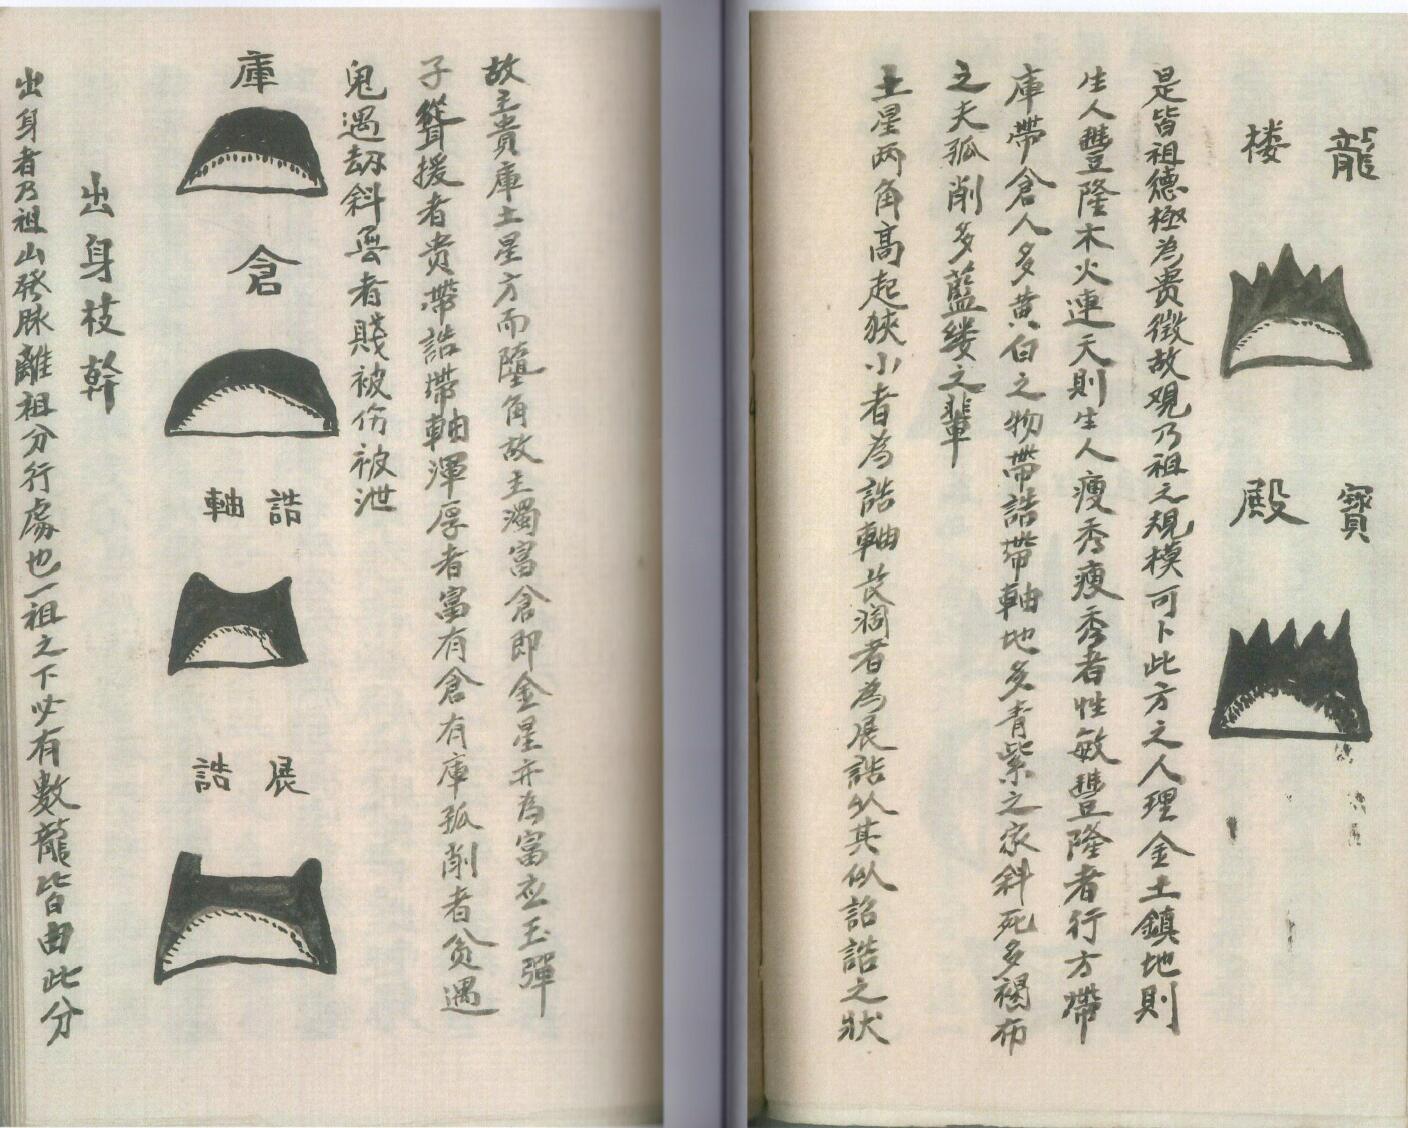 龍楼
寳殿
是皆祖德極為贵徵故观乃祖之規模可卜此方之人理金土鎮地則
生人豐隆木火連天則生人瘦秀瘦秀者性敏豐隆者行方帶
庫帶倉人多黄白之物帶誥帶軸地多青紫之家斜死多褐布
之夫孤削多藍缕之輩
土星两角高起狹小者為誥軸長濶者為展誥以其似詔誥之狀
故主貴庫土星方而墮角故主濁富倉即金星亦為富玉彈
子聳援者贵帶誥帶軸渾厚者富有倉有庫孤削者贫遇
鬼遇刼斜者賤被伤被泄
庫
倉
誥軸
展誥
出身枝幹
出身者乃祖山發脉離祖分行處也一祖之下必有數龍皆由此分